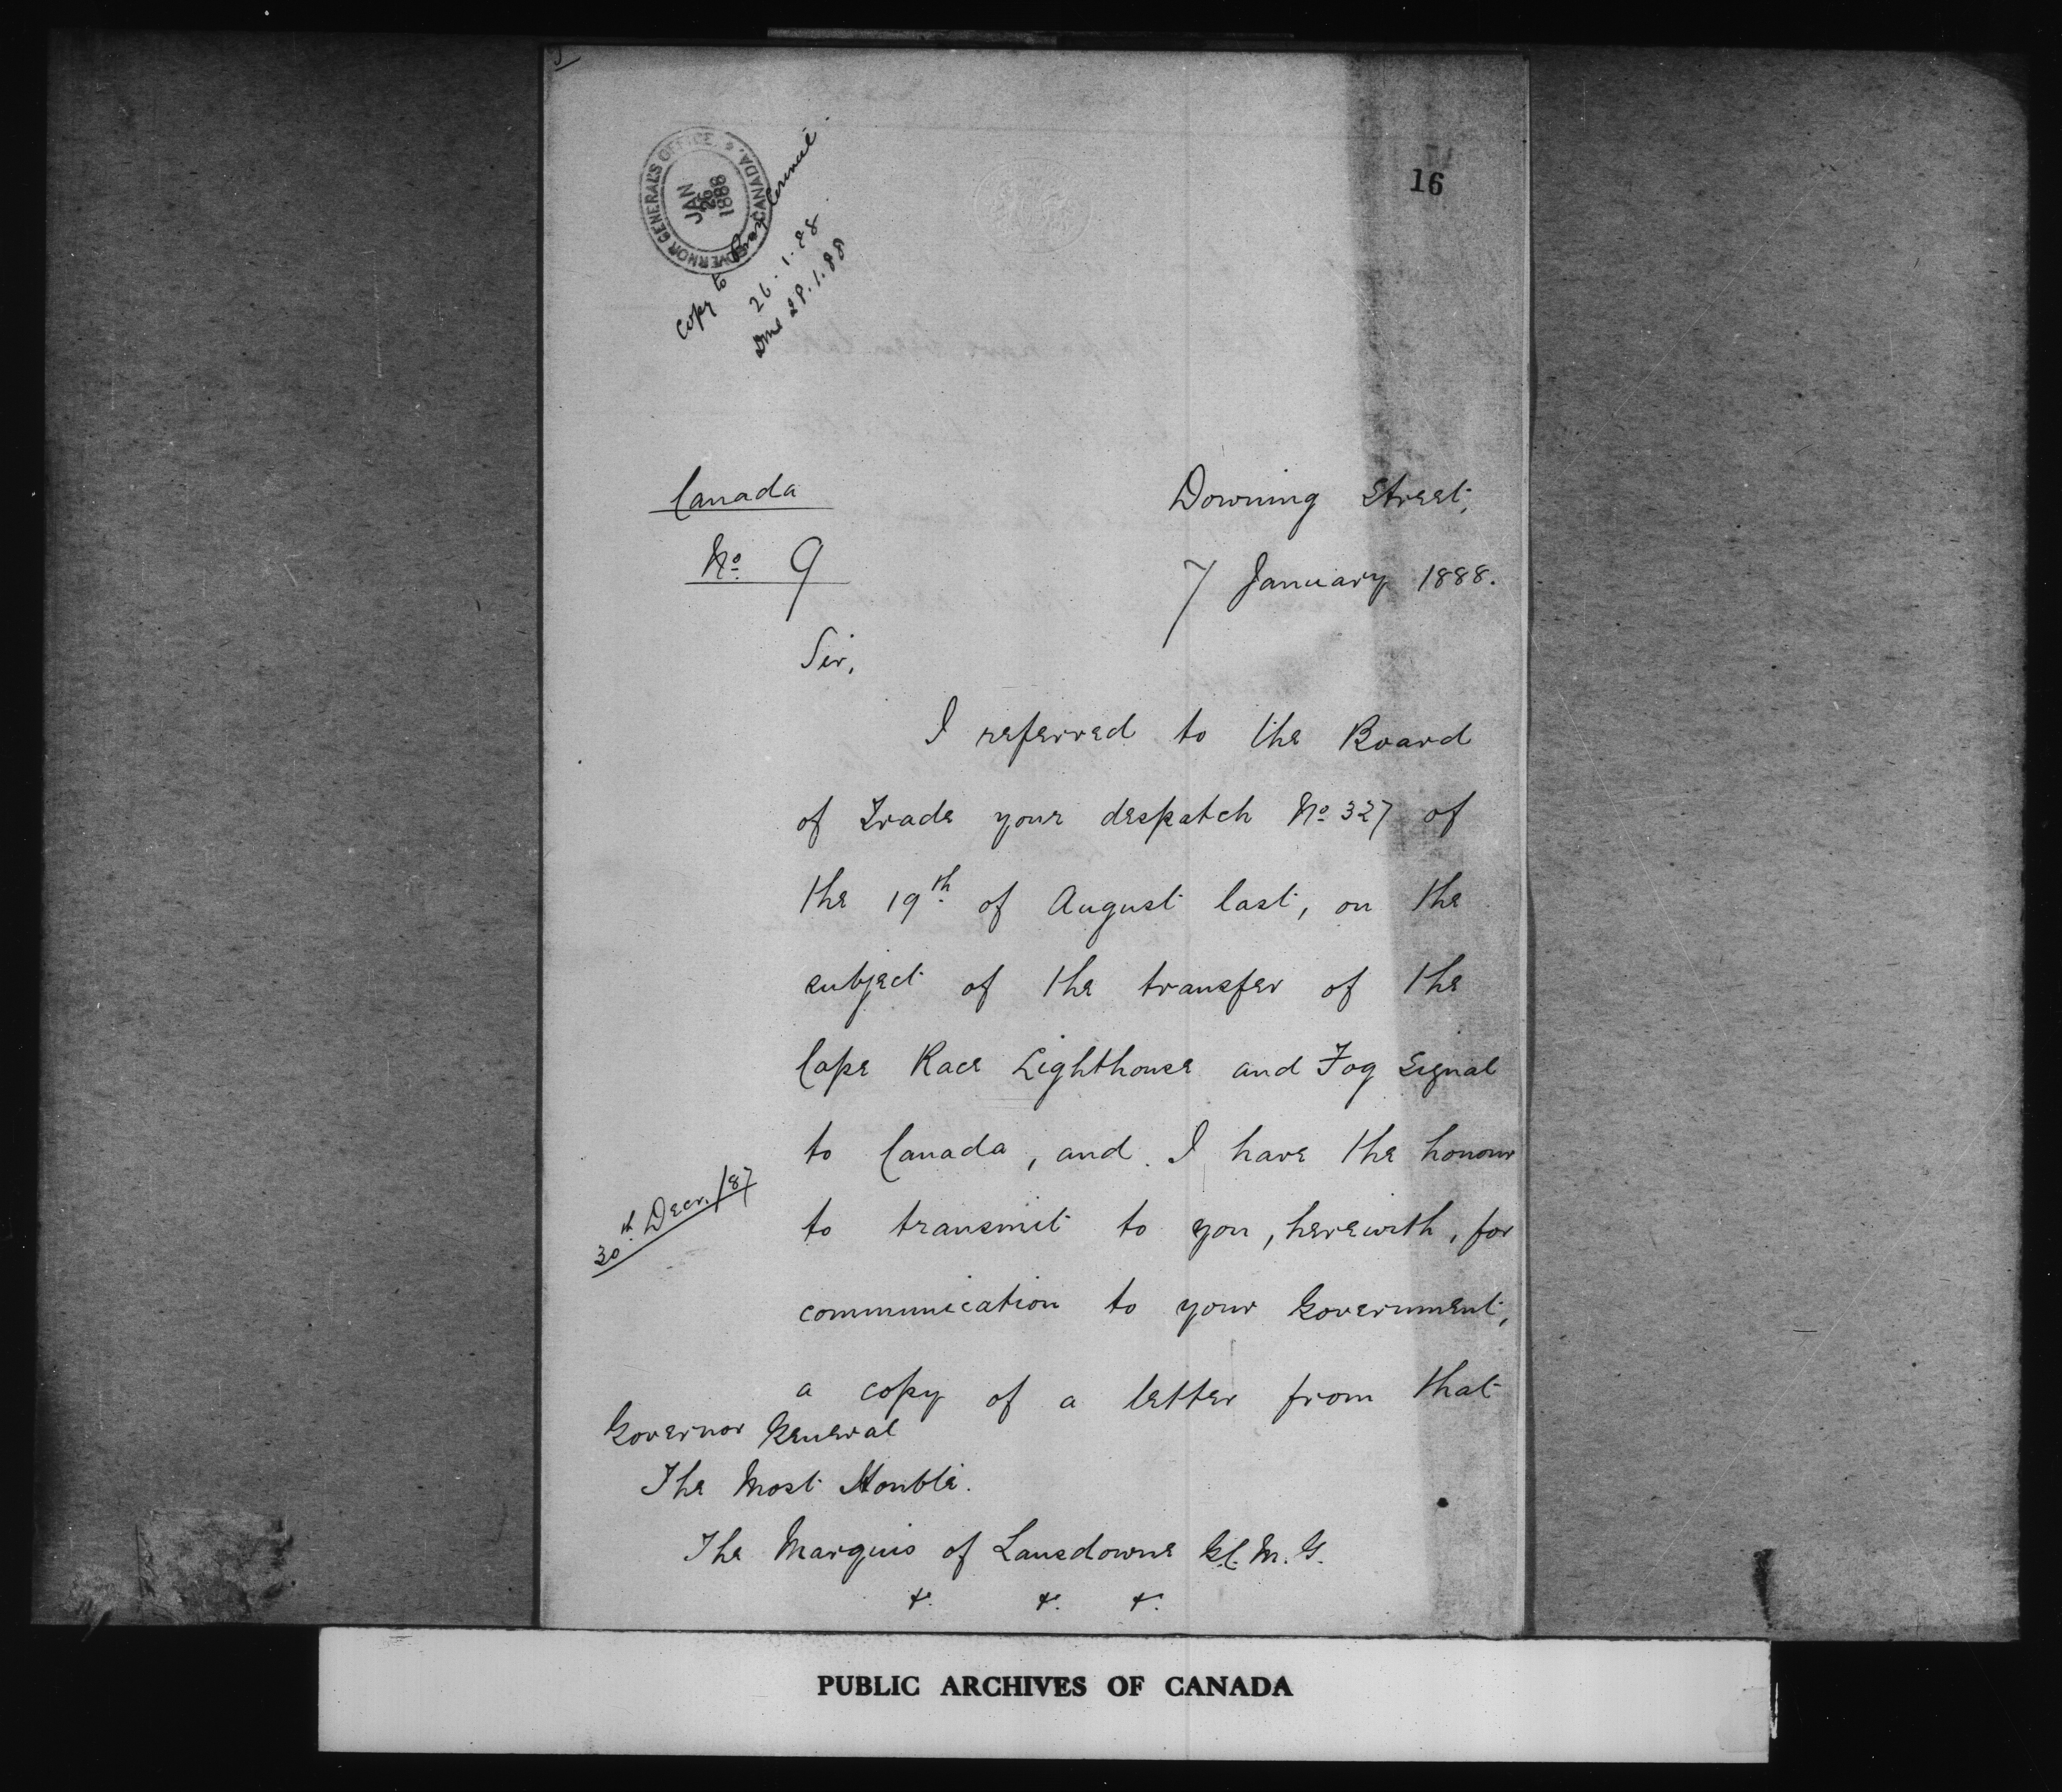 16
GOVERNOR GENERAL'S OFFICE. CANADA.
JAN
26
1888
Copy to Privy Council.
26.1.88.
Done 28.1.88
Canada
No. 9
Downing Street,
7 January 1888.
Sir,
I referred to the Board
of Trade your despatch No. 327 of
the 19th. of August last, on the
subject of the transfer of the
Cape Race Lighthouse and Fog Signal
to Canada, and I have the honour
30th. Decr. /87
to transmit to you, herewith, for
communication to your Government,
a copy of a letter from that
Governor General
The Most Honble.
The Marquis of Lansdowne G.C.M.G.
&. &. &.
PUBLIC ARCHIVES OF CANADA